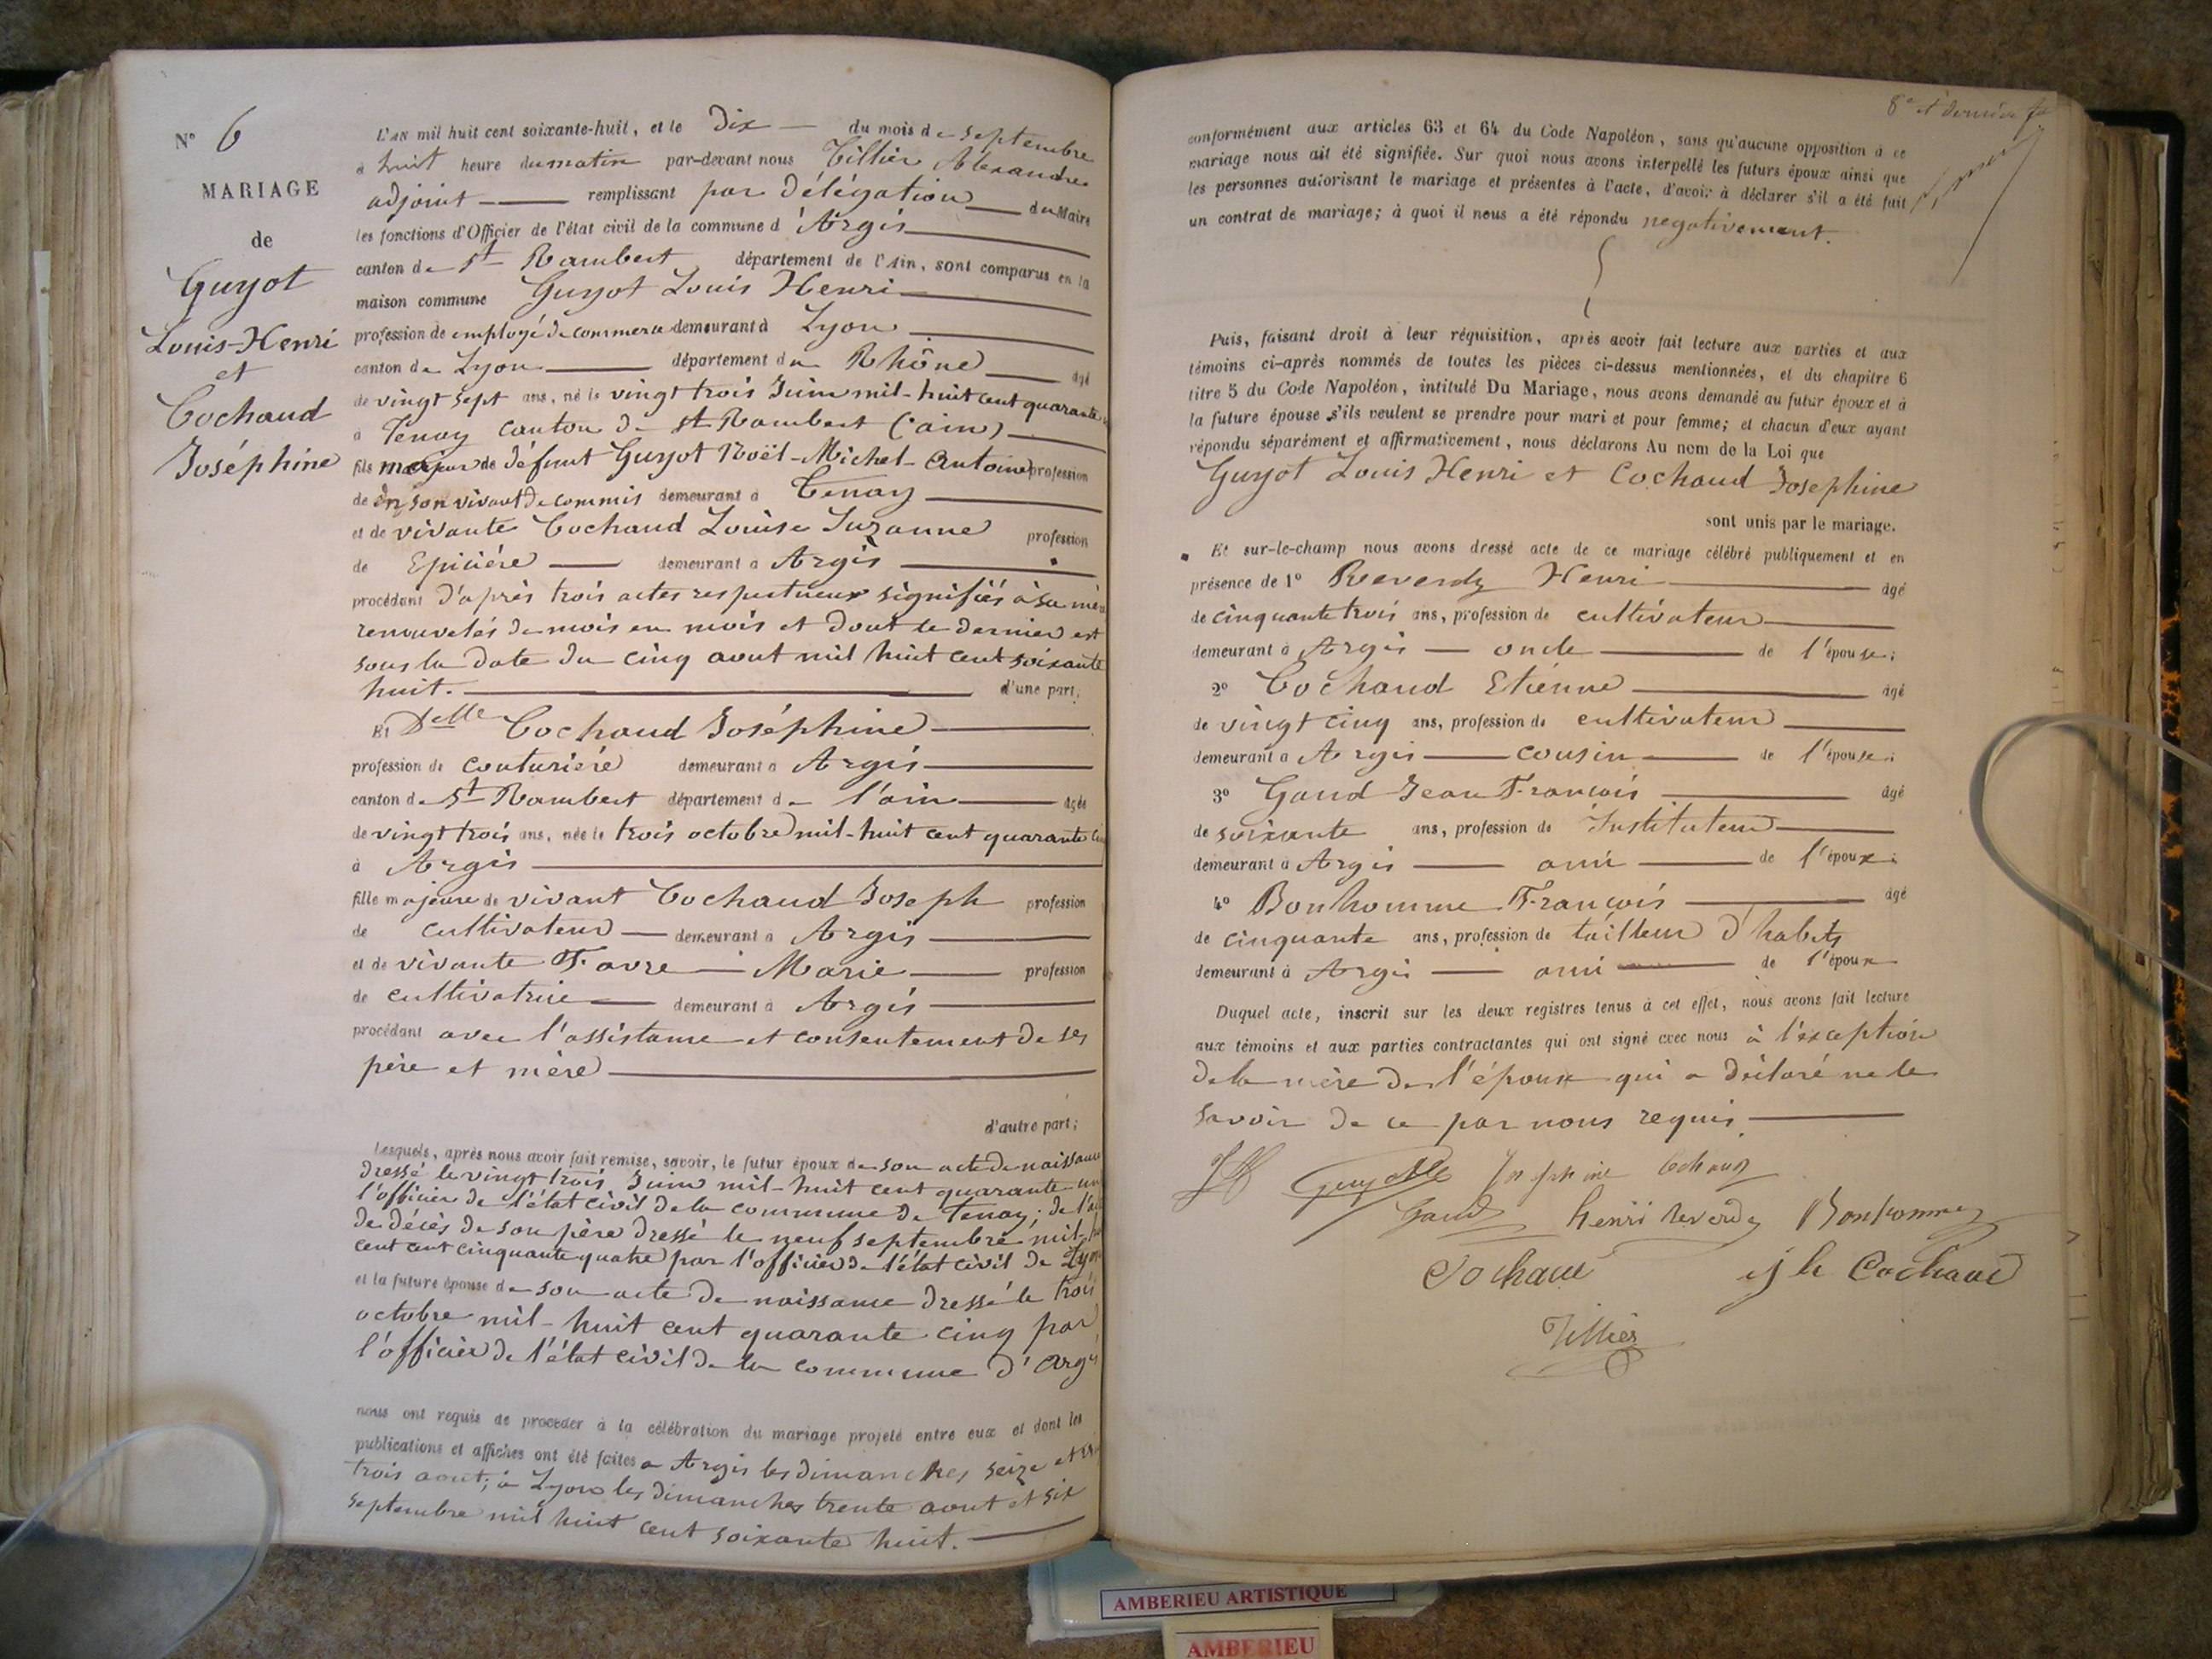 N° 6
MARIAGE
de
Guyot
Louis-Henri
et
Cochaud
Joséphine
L'AN mil huit cent soixante-huit, et le dix du mois de septembre
à huit heure du matin par-devant nous Tillier Alexandre
adjoint remplissant par délégation du Maire
les fonctions d'Officier de l'état civil de la commune d'Argis
canton de St Rambert département de l'Ain, sont comparus en la
maison commune Guyot Louis Henri
profession de employé de commerce demeurant à Lyon
canton de Lyon département du Rhône âgé
de vingt sept ans, né le vingt trois Juin mil-huit cent quarante
à Tenay canton de St Rambert (ain)
fils majeur de défunt Guyot Noël-Michel-Antoine profession
de en son vivant de commis demeurant à Tenay
et de vivante Cochaud Louise Suzanne profession
de Epiciére demeurant à Argis
procédant d'après trois actes respectueux signifiés à sa mère
renouvelés de mois en mois et dont le dernier est
sous la date du cinq aout mil huit cent soixante
huit. d'une part;
Et Delle Cochaud Joséphine
profession de couturiére demeurant à Argis
canton de St Rambert département de l'ain âgée
de vingt trois ans, née le trois octobre mil-huit cent quarante cinq
à Argis
fille majeure de vivant Cochaud Joseph profession
de cultivateur demeurant à Argis
et de vivante Favre Marie profession
de cultivatrice demeurant à Argis
procédant avec l'assistance et consentement de ses
père et mère
d'autre part;
Lesquels, après nous avoir fait remise, savoir, le futur époux de son acte de naissance
dressé le vingt trois Juin mil-huit cent quarante un
l'officier de l'état civil de la commune de Tenay; de l'acte
de décès de son père dressé le neuf septembre mil-huit
cent cent cinquante quatre par l'officier de l'état civil de Lyon
et la future épouse de son acte de naissance dressé le trois
octobre mil-huit cent quarante cinq par
l'officier de l'état civil de la commune d'Argis
nous ont requis de procéder à la célébration du mariage projeté entre eux et dont les
publications et affiches ont été faites à Argis les dimanches seize et vingt
trois aout; à Lyon les dimanches trente aout et six
septembre mil huit cent soixante huit.
8e et dernière
conformément aux articles 63 et 64 du Code Napoléon, sans qu'aucune opposition à ce
mariage nous ait été signifiée. Sur quoi nous avons interpellé les futurs époux ainsi que
les personnes autorisant le mariage et présentes à l'acte, d'avoir à déclarer s'il a été fait
un contrat de mariage; à quoi il nous a été répondu negativement.
Puis, faisant droit à leur réquisition, après avoir fait lecture aux parties et aux
témoins ci-après nommés de toutes les pièces ci-dessus mentionnées, et du chapitre 6
titre 5 du Code Napoléon, intitulé Du Mariage, nous avons demandé au futur époux et à
la future épouse s'ils veulent se prendre pour mari et pour femme; et chacun d'eux ayant
répondu séparément et affirmativement, nous déclarons Au nom de la Loi que
Guyot Louis Henri et Cochaud Josephine
sont unis par le mariage.
Et sur-le-champ nous avons dressé acte de ce mariage célébré publiquement et en
présence de 1° Reverdy Henri âgé
de cinquante trois ans, profession de cultivateur
demeurant à Argis oncle de l'épouse;
2° Cochaud Etienne âgé
de vingt cinq ans, profession de cultivateur
demeurant à Argis cousin de l'épouse;
3° Gaud Jean François âgé
de soixante ans, profession de Instituteur
demeurant à Argis ami de l'époux;
4° Bonhomme François âgé
de cinquante ans, profession de tailleur d'habits
demeurant à Argis ami de l'époux
Duquel acte, inscrit sur les deux registres tenus à cet effet, nous avons fait lecture
aux témoins et aux parties contractantes qui ont signé avec nous à l'exception
de la mère de l'époux qui a déclaré ne le
savoir de ce par nous requis.
Guyot Josephine Cochaud
Gaud henri Reverdy Bonhomme
Cochaud Cochaud
Tillier
AMBERIEU ARTISTIQUE
AMBERIEU